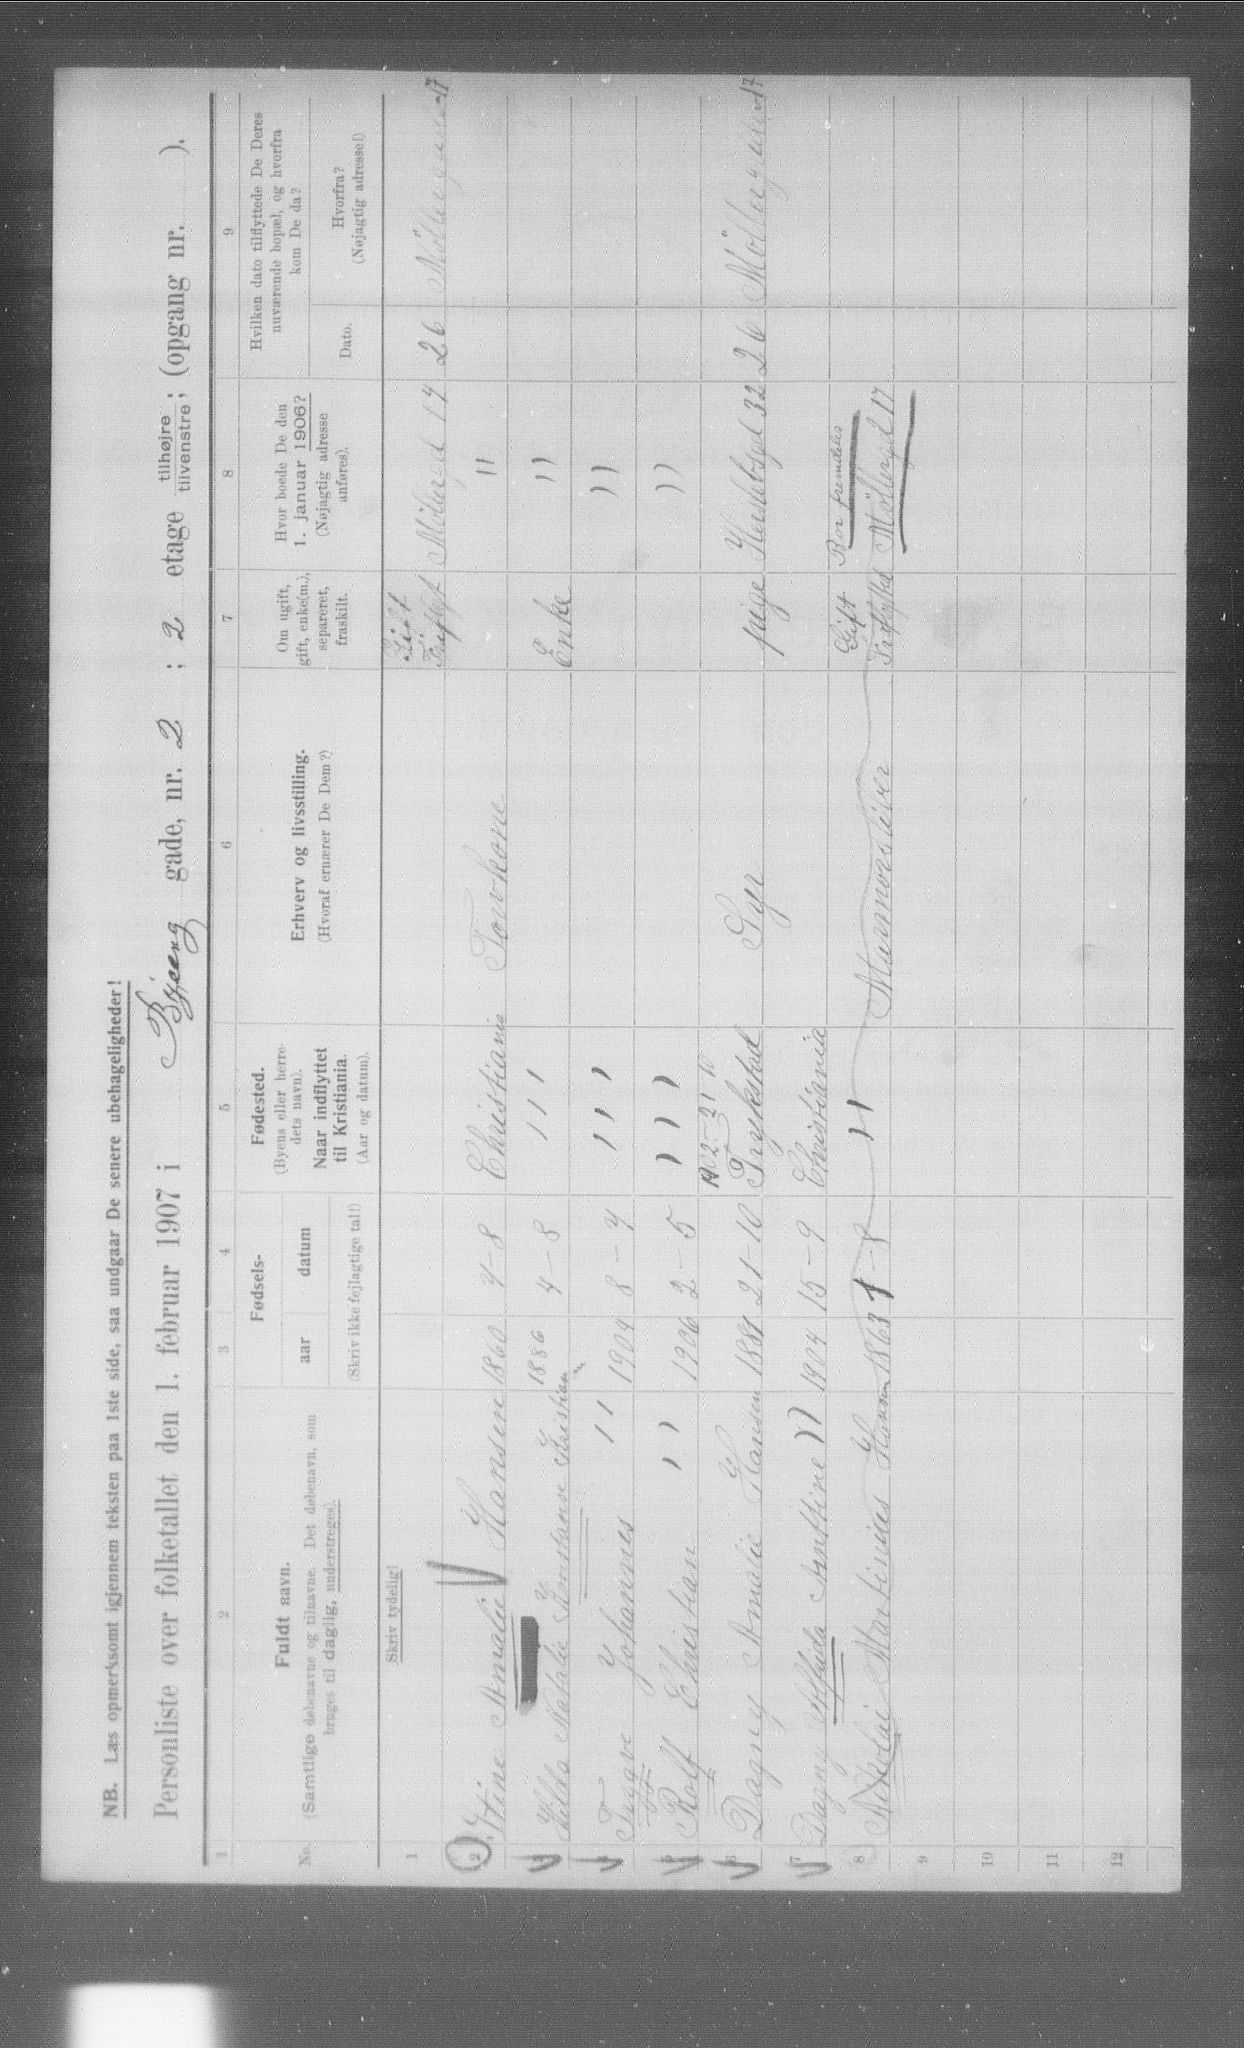 NB. Læs opmerksomt igjennem teksten paa 1ste side, saa undgaar De senere ubehageligheder!
Personliste over folketallet den 1. februar 1907 i Byeng gade, nr. 2 ; 2 etage tilhøjre tilvenstre; (opgang nr. ).
1 2 3 4 5 6 7 8 9
No.
Fuldt navn.
(Samtlige døbenavne og tilnavne. Det døbenavn, som
bruges til daglig, understreges).
Fødsels-
aar datum
(Skriv ikke fejlagtige tal!)
Fødested.
(Byens eller herre-
dets navn).
Naar indflyttet
til Kristiania.
(Aar og datum).
Erhverv og livsstilling.
(Hvoraf ernærer De Dem?)
Om ugift,
gift, enke(m.),
separeret,
fraskilt.
Hvor boede De den
1. januar 1906?
(Nøjagtig adresse
anføres).
Hvilken dato tilflyttede De Deres
nuværende bopæl, og hvorfra
kom De da?
Dato.
Hvorfra?
(Nøjagtig adresse!)
Skriv tydelig!
1
2 Stine Amalie Hansen 1860 4-8 Christiania Tovkone Gift 17 26 17
3 Hilda Natalie Konstanse Kristian 1886 4-8 " Enke "
4 Trygve Johannes " 1904 8-4 " "
5 Rolf Christian " 1906 2-5 " "
1902-21-10
6 Dagny Amalie Hansen 1881 21 10 Trykstad Syr pige 32 26 17
7 Dagny Alfhilda " 1904 15-9 Christiania
Gift Bor fremdeles
8 Nikolai Martinius Hansen 1863 1-8 " Marmorsliver Møllergd 17
9
10
11
12